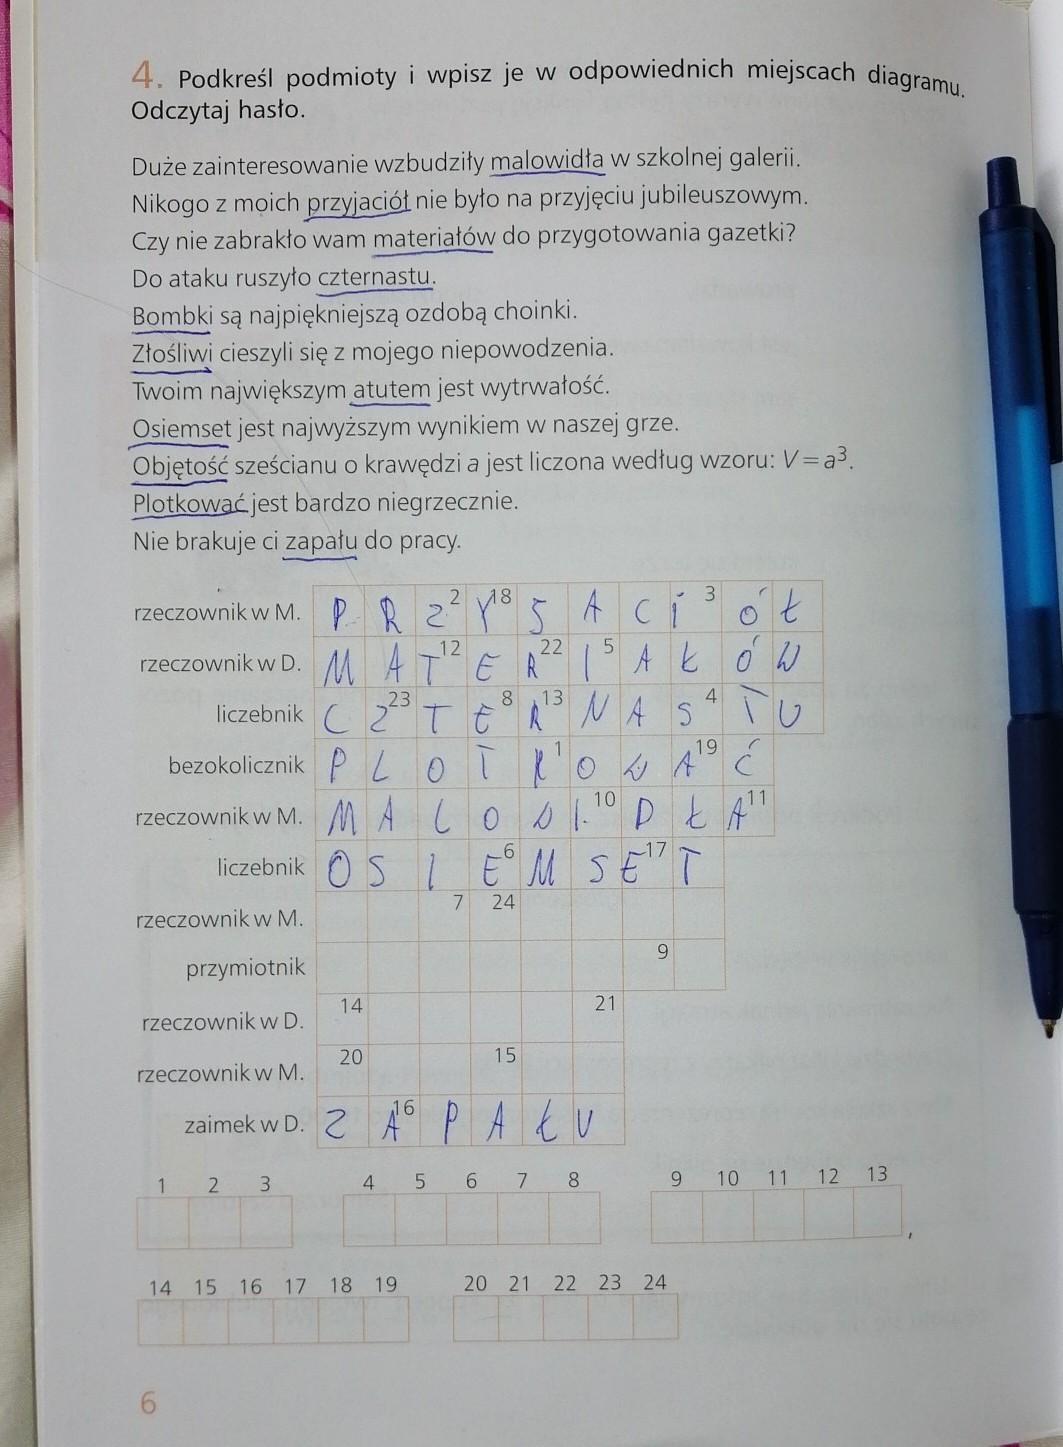 4. Podkreśl podmioty i wpisz je w odpowiednich miejscach diagramu.
Odczytaj hasło.
Duże zainteresowanie wzbudziły malowidła w szkolnej galerii.
Nikogo z moich przyjaciół nie było na przyjęciu jubileuszowym.
Czy nie zabrakło wam materiałów do przygotowania gazetki?
Do ataku ruszyło czternastu.
Bombki są najpiękniejszą ozdobą choinki.
Złośliwi cieszyli się z mojego niepowodzenia.
Twoim największym atutem jest wytrwałość.
Osiemset jest najwyższym wynikiem w naszej grze.
Objętość sześcianu o krawędzi a jest liczona według wzoru: V = a³.
Plotkować jest bardzo niegrzecznie.
Nie brakuje ci zapału do pracy.
rzeczownik w M. P R Z 2 Y 18 J A C I 3 Ó Ł
rzeczownik w D. M A T 12 E R 22 I 5 A Ł Ó W
liczebnik C Z 23 T E 8 R 13 N A S 4 T U
bezokolicznik P L O T K 1 O W A 19 Ć
rzeczownik w M. M A L O W I 10 D Ł A 11
liczebnik O S I E 6 M S E 17 T
rzeczownik w M. 7 24
przymiotnik 9
rzeczownik w D. 14 21
rzeczownik w M. 20 15
zaimek w D. Z A 16 P A Ł U
1 2 3 4 5 6 7 8 9 10 11 12 13
,
14 15 16 17 18 19 20 21 22 23 24
6